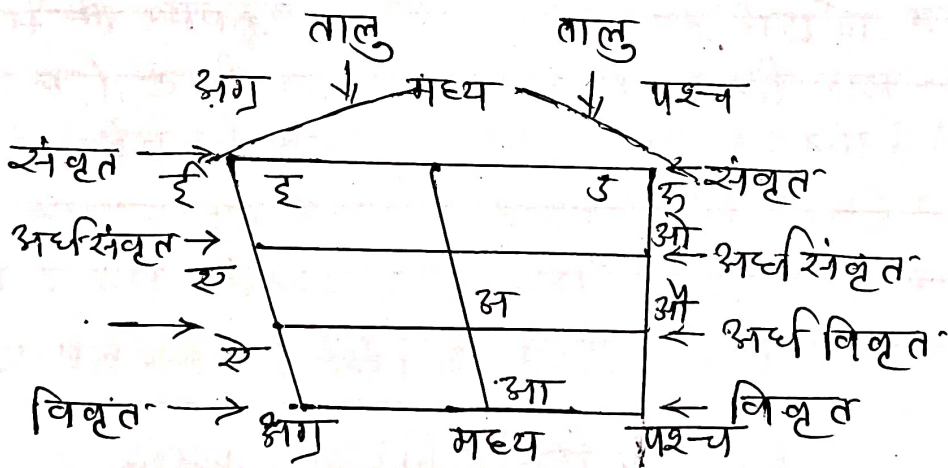 तालु तालु
अग्र मध्य पश्च
संवृत ई इ उ ऊ संवृत
अर्धसंवृत ए ओ अर्धसंवृत
अ
ऐ औ अर्ध विवृत
आ
विवृत विवृत
अग्र मध्य पश्च